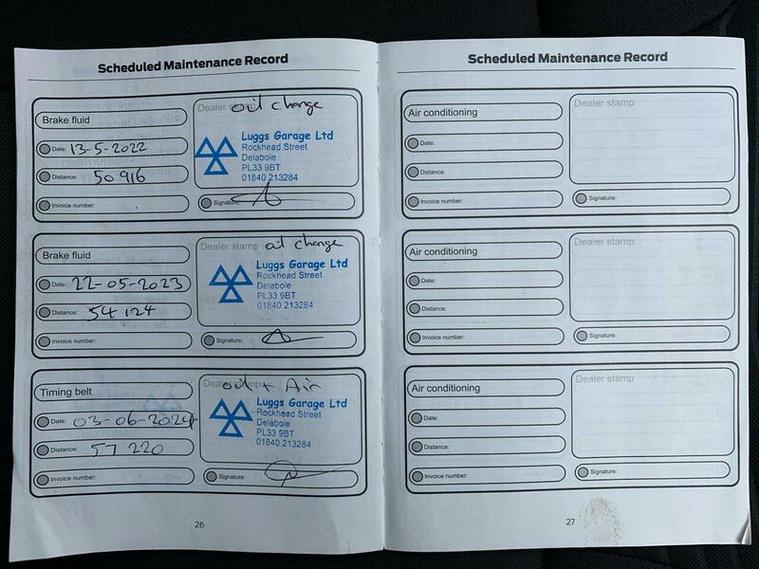 Scheduled Maintenance Record
Brake fluid
Date: 13-5-2022
Distance: 50 916
Invoice number:
Dealer stamp oil change
Luggs Garage Ltd
Rockhead Street
Delabole
PL33 9BT
01840 213284
Signature:
Brake fluid
Date: 22-05-2023
Distance: 54 124
Invoice number:
Dealer stamp oil change
Luggs Garage Ltd
Rockhead Street
Delabole
PL33 9BT
01840 213284
Signature:
Timing belt
Date: 03-06-2024
Distance: 57 220
Invoice number:
Dealer stamp oil + Air
Luggs Garage Ltd
Rockhead Street
Delabole
PL33 9BT
01840 213284
Signature:
26
Scheduled Maintenance Record
Air conditioning
Date:
Distance:
Invoice number:
Dealer stamp
Signature:
Air conditioning
Date:
Distance:
Invoice number:
Dealer stamp
Signature:
Air conditioning
Date:
Distance:
Invoice number:
Dealer stamp
Signature:
27